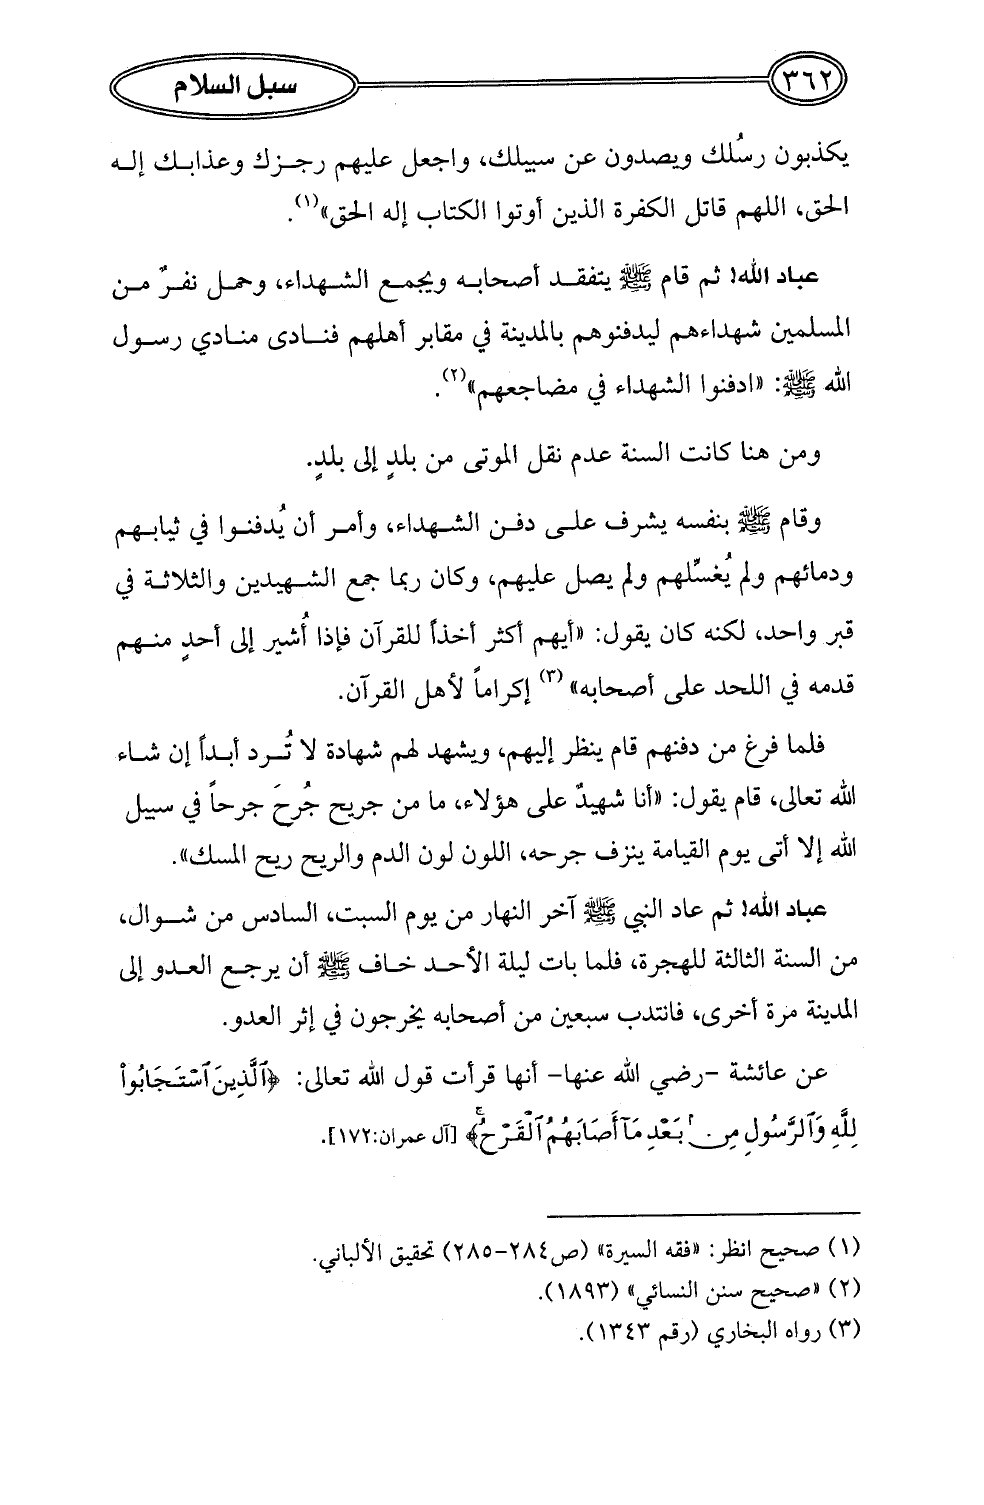 ٣٦٢
سبل السلام
يكذبون رسُلك ويصدون عن سبيلك، واجعل عليهم رجزك وعذابك إله
الحق، اللهم قاتل الكفرة الذين أوتوا الكتاب إله الحق»(١).
عباد الله! ثم قام ﷺ يتفقد أصحابه ويجمع الشهداء، وحمل نفرٌ من
المسلمين شهداءهم ليدفنوهم بالمدينة في مقابر أهلهم فنادى منادي رسول
الله ﷺ: «ادفنوا الشهداء في مضاجعهم»(٢).
ومن هنا كانت السنة عدم نقل الموتى من بلدٍ إلى بلدٍ.
وقام ﷺ بنفسه يشرف على دفن الشهداء، وأمر أن يُدفنوا في ثيابهم
ودمائهم ولم يُغسِّلهم ولم يصل عليهم، وكان ربما جمع الشهيدين والثلاثة في
قبر واحد، لكنه كان يقول: «أيهم أكثر أخذاً للقرآن فإذا أُشير إلى أحدٍ منهم
قدمه في اللحد على أصحابه»(٣) إكراماً لأهل القرآن.
فلما فرغ من دفنهم قام ينظر إليهم، ويشهد لهم شهادة لا تُرد أبداً إن شاء
الله تعالى، قام يقول: «أنا شهيدٌ على هؤلاء، ما من جريح جُرحَ جرحاً في سبيل
الله إلا أتى يوم القيامة ينزف جرحه، اللون لون الدم والريح ريح المسك».
عباد الله! ثم عاد النبي ﷺ آخر النهار من يوم السبت، السادس من شوال،
من السنة الثالثة للهجرة، فلما بات ليلة الأحد خاف ﷺ أن يرجع العدو إلى
المدينة مرة أخرى، فانتدب سبعين من أصحابه يخرجون في إثر العدو.
عن عائشة -رضي الله عنها- أنها قرأت قول الله تعالى: ﴿ٱلَّذِينَ ٱسْتَجَابُوا۟
لِلَّهِ وَٱلرَّسُولِ مِنۢ بَعْدِ مَآ أَصَابَهُمُ ٱلْقَرْحُ ۚ﴾ [آل عمران:١٧٢].
(١) صحيح انظر: «فقه السيرة» (ص٢٨٤-٢٨٥) تحقيق الألباني.
(٢) «صحيح سنن النسائي» (١٨٩٣).
(٣) رواه البخاري (رقم ١٣٤٣).